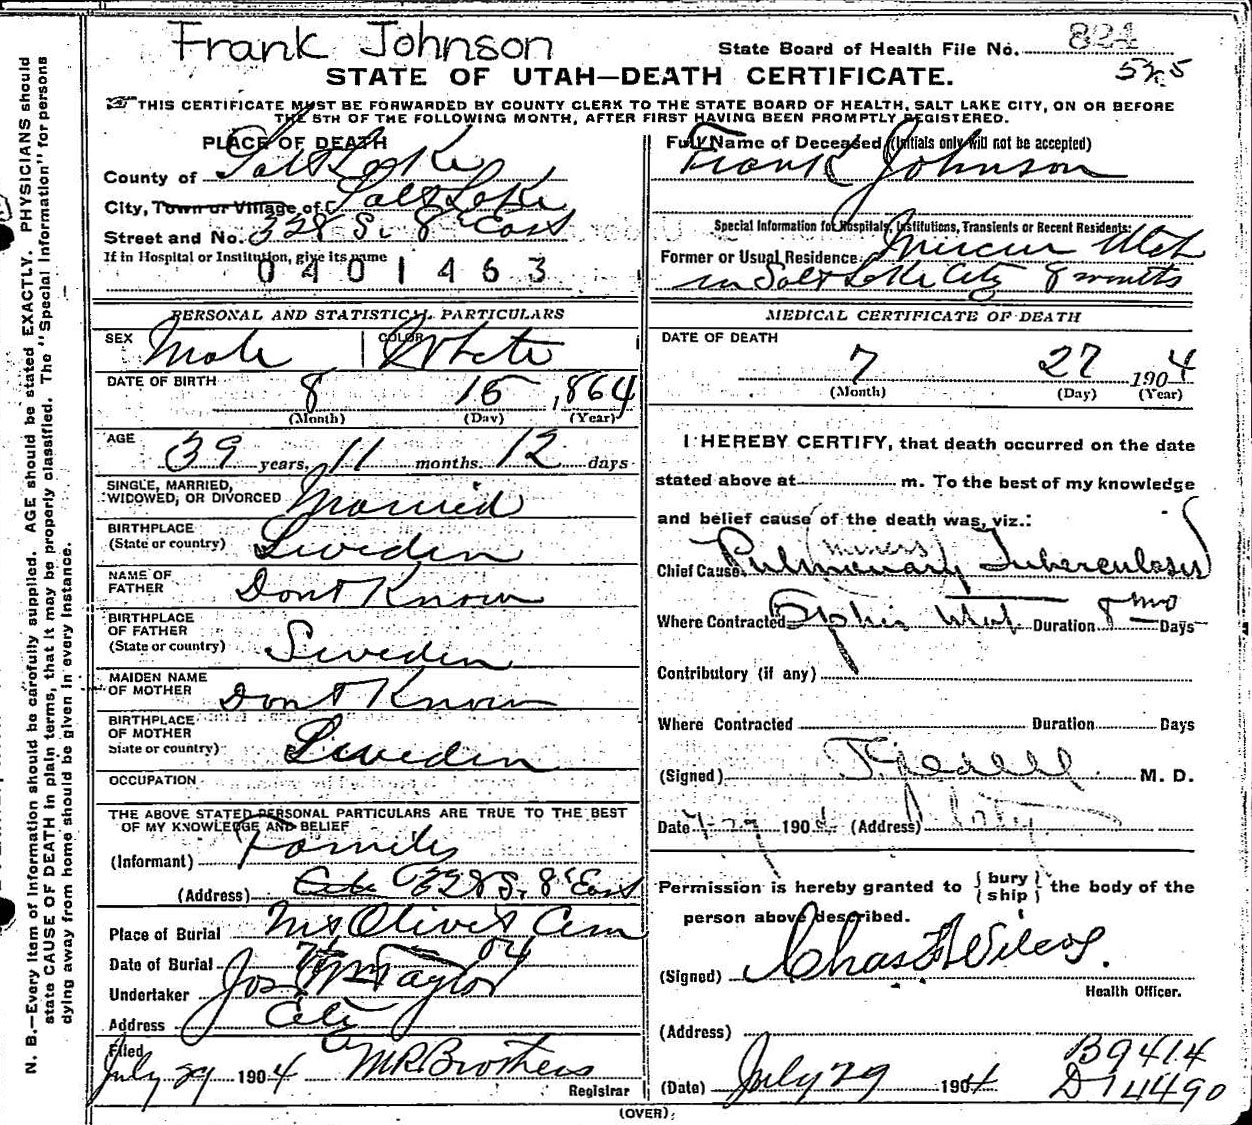 Frank Johnson
State Board of Health File No. 824
525
STATE OF UTAH—DEATH CERTIFICATE.
THIS CERTIFICATE MUST BE FORWARDED BY COUNTY CLERK TO THE STATE BOARD OF HEALTH, SALT LAKE CITY, ON OR BEFORE
THE 5TH OF THE FOLLOWING MONTH, AFTER FIRST HAVING BEEN PROMPTLY REGISTERED.
PLACE OF DEATH
County of Salt Lake
City, Town or Village of Salt Lake
Street and No. 328 S. 8 East
If in Hospital or Institution, give its name
0401463
Full Name of Deceased (Initials only will not be accepted)
Frank Johnson
Special Information for Hospitals, Institutions, Transients or Recent Residents:
Former or Usual Residence Mercur Utah
in Salt Lake City 8 months
PERSONAL AND STATISTICAL PARTICULARS
SEX Male COLOR White
DATE OF BIRTH 8 15 1864
(Month) (Day) (Year)
AGE 39 years, 11 months. 12 days
SINGLE, MARRIED,
WIDOWED, OR DIVORCED Married
BIRTHPLACE
(State or country) Sweden
NAME OF
FATHER Dont Know
BIRTHPLACE
OF FATHER
(State or country) Sweden
MAIDEN NAME
OF MOTHER Dont Know
BIRTHPLACE
OF MOTHER
State or country) Sweden
OCCUPATION
THE ABOVE STATED PERSONAL PARTICULARS ARE TRUE TO THE BEST
OF MY KNOWLEDGE AND BELIEF
(Informant) Family
(Address) City 328 S. 8 East
Place of Burial Mt Olivet Cem
Date of Burial 04
Undertaker Jos Wm Taylor
Address City
Filed
July 29 1904 MR Brothers
Registrar
MEDICAL CERTIFICATE OF DEATH
DATE OF DEATH
7 27 1904
(Month) (Day) (Year)
I HEREBY CERTIFY, that death occurred on the date
stated above at m. To the best of my knowledge
and belief cause of the death was, viz.:
(miners)
Chief Cause Pulmonary Tuberculosis
Where Contracted Ophir Utah Duration 8 mo Days
Contributory (if any)
Where Contracted Duration Days
(Signed) M. D.
Date 7-29 1904 (Address) City
Permission is hereby granted to { bury ship } the body of the
person above described.
(Signed) Chas F Wilcox.
Health Officer.
(Address)
(Date) July 29 1904
B9414
D14490
(OVER)
N. B.—Every item of information should be carefully supplied. AGE should be stated EXACTLY. PHYSICIANS should
state CAUSE OF DEATH in plain terms, that it may be properly classified. The "Special Information" for persons
dying away from home should be given in every instance.